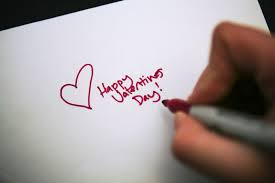 Happy
Valentines
Day!